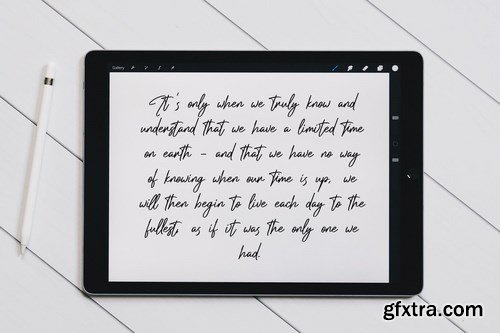 Gallery
It's only when we truly know and
understand that we have a limited time
on earth – and that we have no way
of knowing when our time is up, we
will then begin to live each day to the
fullest, as if it was the only one we
had.
gfxtra.com